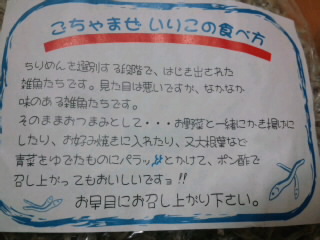 ごちゃまぜ いりこの食べ方
ちりめんを選別する段階で、はじき出された
雑魚たちです。見た目は悪いですが、なかなか
味のある雑魚たちです。
そのままおつまみとして・・・お野菜と一緒にかき揚げに
したり、お好み焼きに入れたり、又大根葉など
青菜をゆでたものにパラッとかけて、ポン酢で
召し上がってもおいしいですョ!!
お早目にお召し上がり下さい。